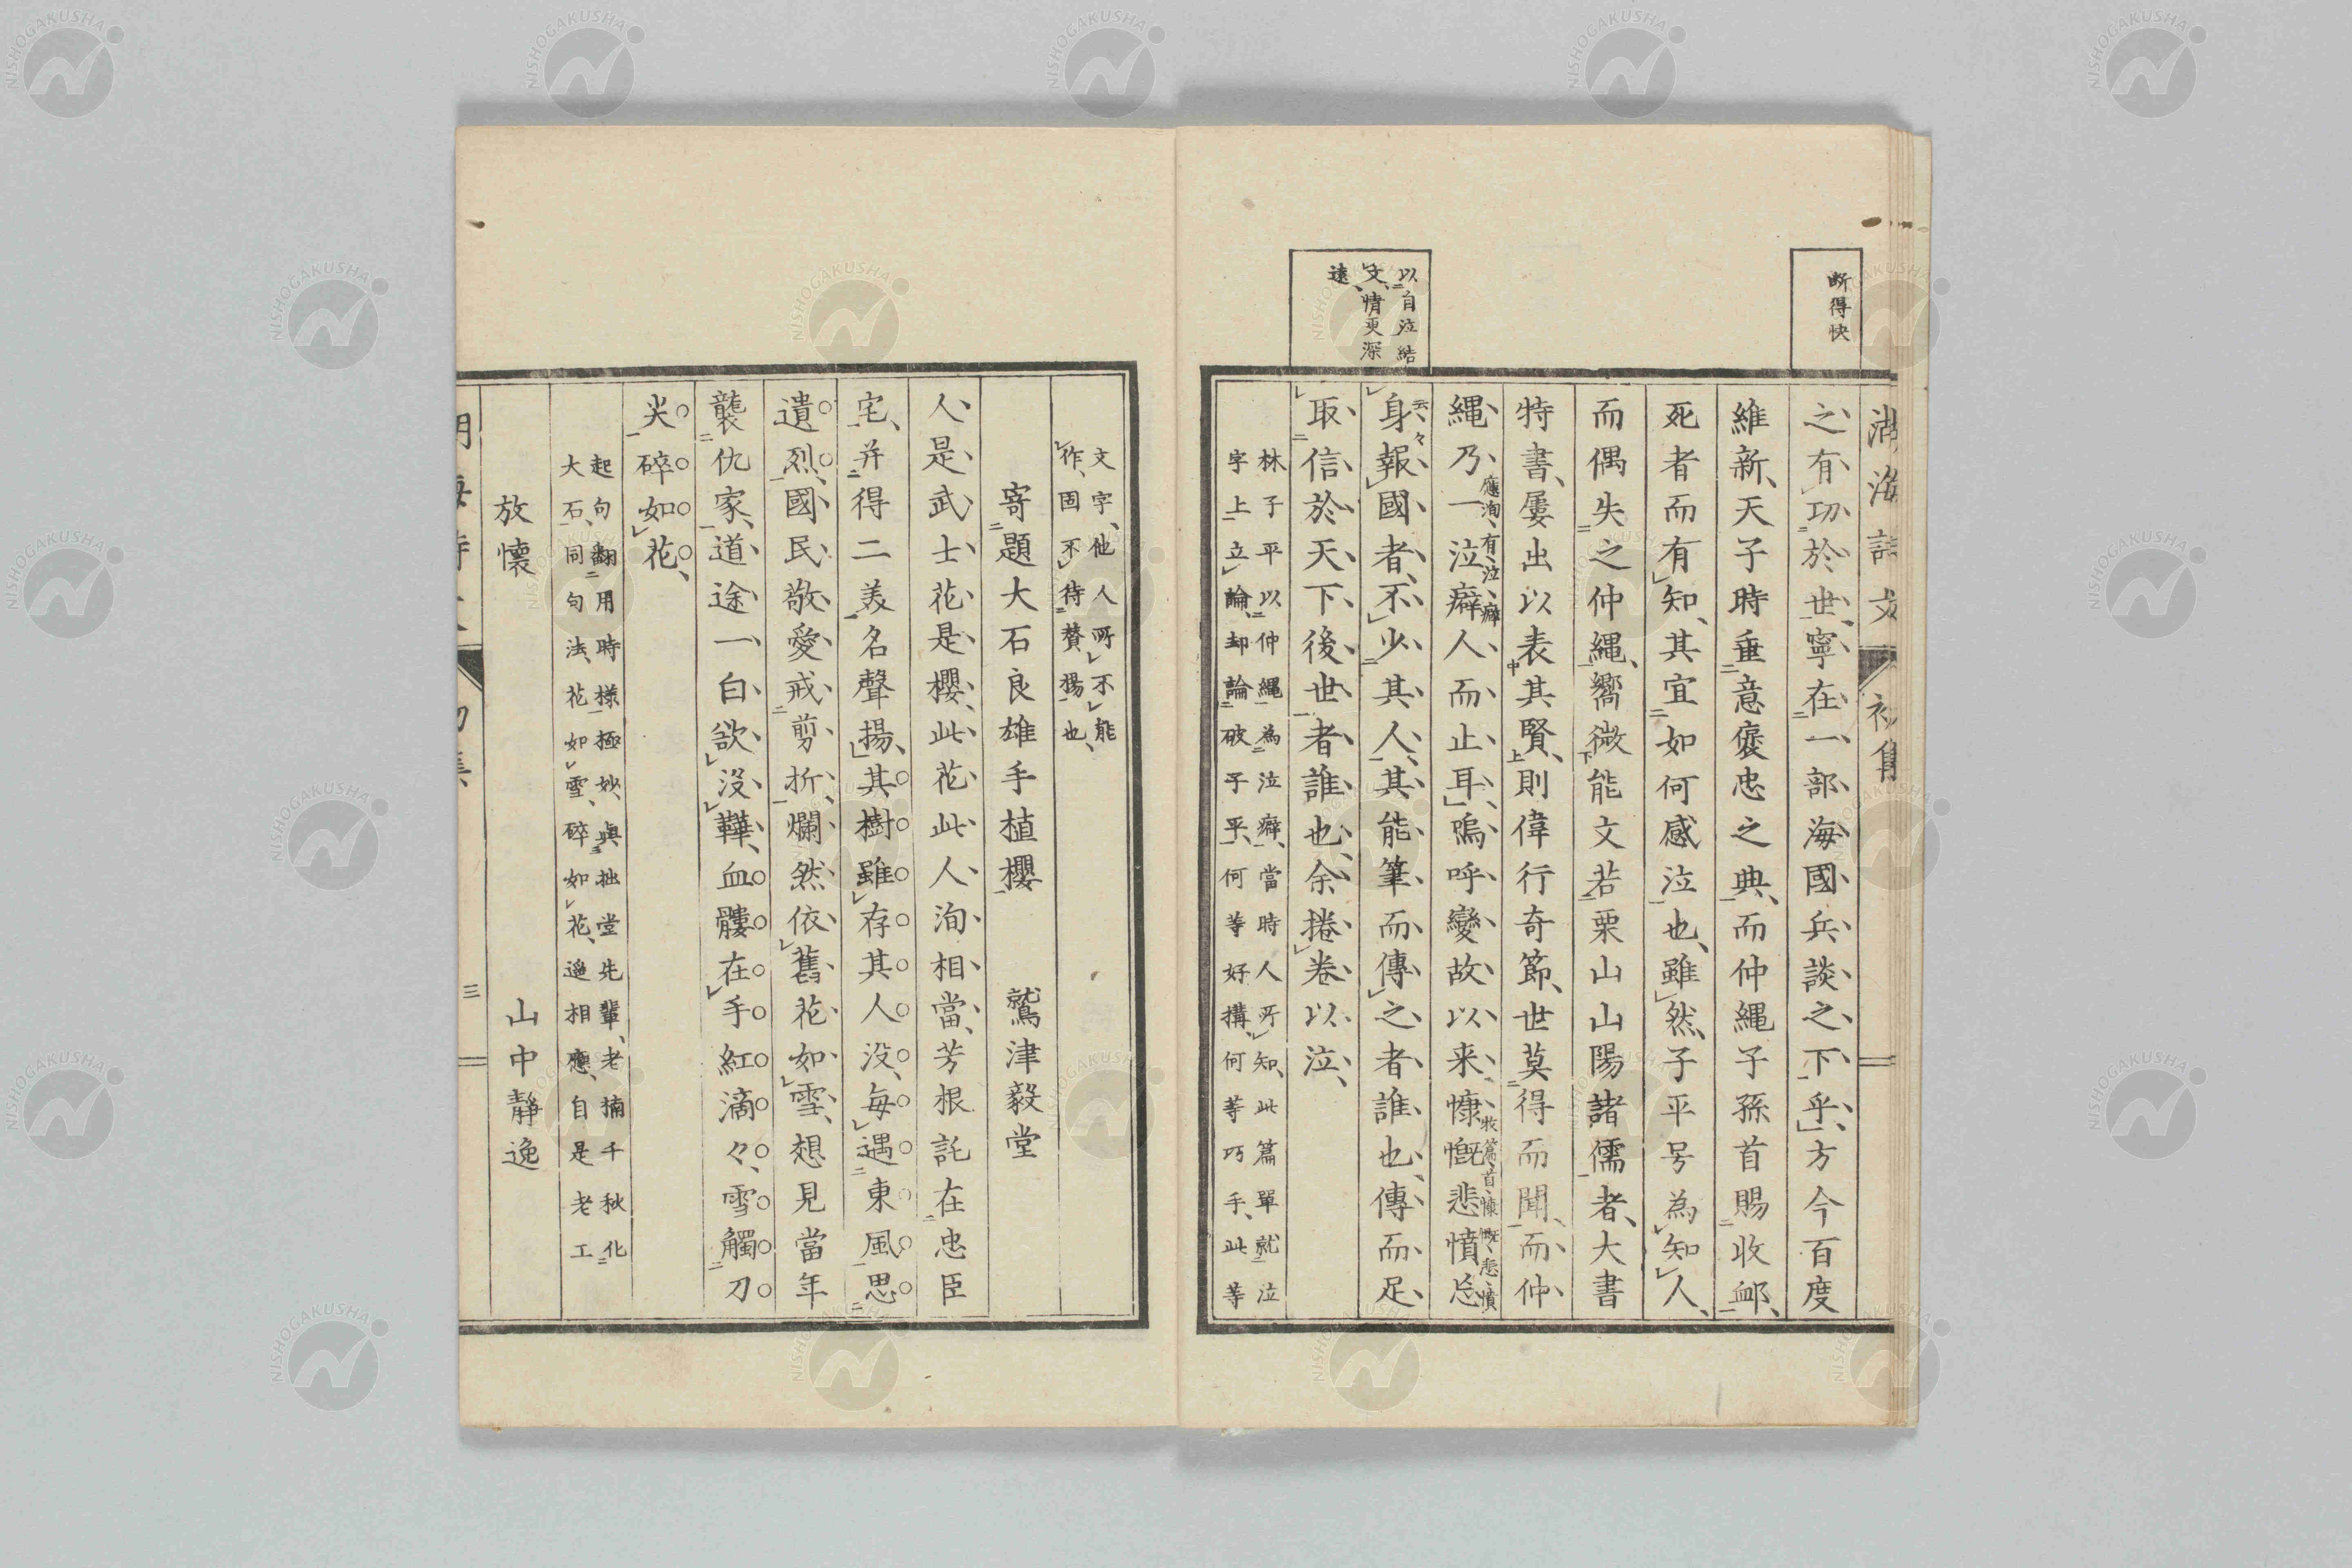 湖海詩文 初集
断得快
之有功於世、寧在一部海國兵談之下乎、方今百度
維新、天子時垂意褒忠之典、而仲繩子孫首賜收䘏、
死者而有知、其宜如何感泣也、雖然、子平号為知人、
而偶失之仲繩、嚮微能文若栗山山陽諸儒者、大書
特書、屢出以表其賢、則偉行奇節、世莫得而聞、而仲
應洵、有泣癖
繩乃一泣癖人而止耳、嗚呼變故以来、慷慨悲憤忘
牧篇首慷慨悲憤
云々
以自泣結
文、情更深
遠、
身報國者、不少其人、其能筆而傳之者誰也、傳而足
取信於天下後世者誰也、余捲卷以泣、
林子平以仲繩為泣癖、當時人所知、此篇單就泣
字上立論、却論破子平、何等好搆、何等巧手、此等
文字、他人所不能
作、固不待賛揚也、
寄題大石良雄手植櫻 鷲津毅堂
人是武士花是櫻、此花此人洵相當、芳根託在忠臣
宅、并得二美名聲揚、其樹雖存其人没、毎遇東風思
遺烈、國民敬愛戒剪折、爛然依舊花如雪、想見當年
襲仇家、道途一白欲没鞾、血髏在手紅滴々、雪觸刀
尖碎如花、
起句翻用時様極妙、與拙堂先輩、老楠千秋化
大石、同句法、花如雪、碎如花、遥相應、自是老工
放懷 山中靜逸
湖海詩文 初集 三
NISHOGAKUSHA